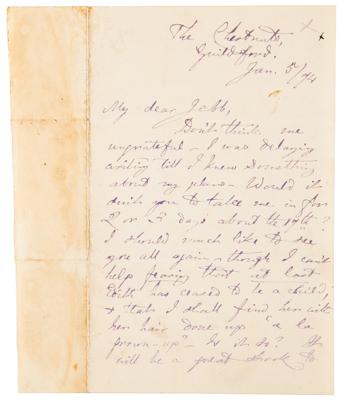 The Chestnuts,
Guildford.
Jan. 5/74
My dear Jebb,
Don't think me
ungrateful – I was delaying
writing till I knew something
about my plans – Would it
suit you to take me in for
2 or 3 days about the
I should much like to see
you all again – though I can't
help fearing that at last
Edith has ceased to be a child,
& that I shall find her with
her hair done up "a la
grown-up" – Is it so? It
will be a great shock to